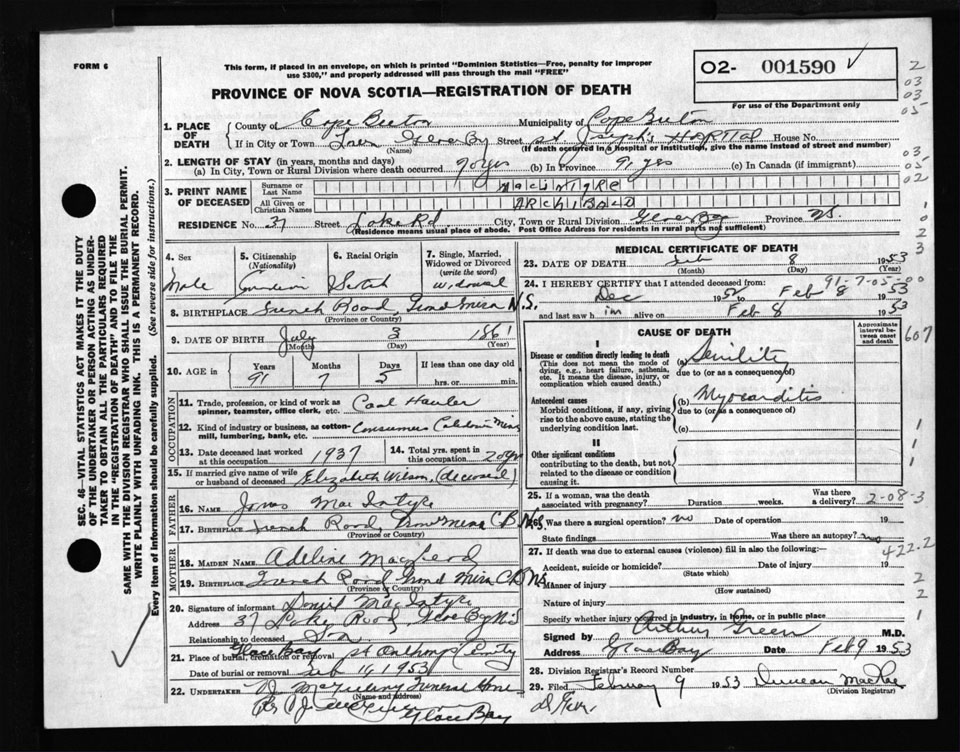 FORM 6
This form, if placed in an envelope, on which is printed "Dominion Statistics—Free, penalty for improper
use $300," and properly addressed will pass through the mail "FREE"
O2- 001590
For use of the Department only
PROVINCE OF NOVA SCOTIA—REGISTRATION OF DEATH
2
03
03
05
03
05
02
1. PLACE OF DEATH County of Cape Breton Municipality of Cape Breton
If in City or Town Town Glace Bay Street St Joseph's HOSPITAL House No.
(Name) (If death occurred in a Hospital or Institution, give the name instead of street and number)
2. LENGTH OF STAY (in years, months and days)
(a) In City, Town or Rural Division where death occurred 70 yrs (b) in Province 91 yrs (c) In Canada (if immigrant)
3. PRINT NAME OF DECEASED Surname or Last Name MACINTYRE
All Given or Christian Names ARCHIBALD
RESIDENCE No. 37 Street Lake Rd City, Town or Rural Division Glace Bay Province N.S.
(Residence means usual place of abode. Post Office Address for residents in rural parts not sufficient)
4. Sex Male
5. Citizenship (Nationality) Canadian
6. Racial Origin Scotch
7. Single, Married, Widowed or Divorced (write the word) Widowed
8. BIRTHPLACE French Road, Grand Mira N.S.
(Province or Country)
9. DATE OF BIRTH July 3 1861
(Month) (Day) (Year)
10. AGE in Years Months Days If less than one day old
91 7 5 hrs. or min.
OCCUPATION
11. Trade, profession, or kind of work as spinner, teamster, office clerk, etc. Coal Hauler
12. Kind of industry or business, as cotton-mill, lumbering, bank, etc. Consumers
13. Date deceased last worked at this occupation 1937
14. Total yrs. spent in this occupation 20 yrs
15. If married give name of wife or husband of deceased Elizabeth Wilson (deceased)
FATHER
16. NAME James MacIntyre
17. BIRTHPLACE French Road, Grand Mira C.B. N.S.
(Province or Country)
MOTHER
18. MAIDEN NAME Adeline MacLeod
19. BIRTHPLACE French Road Grand Mira C.B. N.S.
(Province or Country)
20. Signature of informant Daniel MacIntyre
Address 37 Lake Road, Glace Bay N.S
Relationship to deceased Son
21. Place of burial, cremation or removal Glace Bay St Anthony
Date of burial or removal Feb 1953
22. UNDERTAKER Funeral Home
(Name and Address)
Glace Bay
MEDICAL CERTIFICATE OF DEATH
23. DATE OF DEATH Feb 8 1953
(Month) (Day) (Year)
91-7-05-00
24. I HEREBY CERTIFY that I attended deceased from:
Dec 1952 to Feb 8 1953
and last saw him alive on Feb 8 1953
CAUSE OF DEATH
Approximate interval between onset and death
I
Disease or condition directly leading to death
(This does not mean the mode of dying, e.g., heart failure, asthenia, etc. It means the disease, injury, or complication which caused death.)
(a) Senility
due to (or as a consequence of)
607
Antecedent causes
Morbid conditions, if any, giving rise to the above cause, stating the underlying condition last.
(b) Myocarditis
due to (or as a consequence of)
(c)
II
Other significant conditions
contributing to the death, but not related to the disease or condition causing it.
25. If a woman, was the death associated with pregnancy? Duration weeks. Was there a delivery? 2-08-3
26. Was there a surgical operation? no Date of operation 19
State findings Was there an autopsy? no
422.2
27. If death was due to external causes (violence) fill in also the following:—
Accident, suicide or homicide? Date of injury 19
(State which)
Manner of injury
(How sustained)
Nature of injury
Specify whether injury occurred in industry, in home, or in public place
Signed by Arthur Green M.D.
Address Glace Bay Date Feb 9 1953
28. Division Registrar's Record Number
29. Filed February 9 1953 Duncan MacRae
(Division Registrar)
SEC. 46—VITAL STATISTICS ACT MAKES IT THE DUTY
OF THE UNDERTAKER OR PERSON ACTING AS UNDER-
TAKER TO OBTAIN ALL THE PARTICULARS REQUIRED
IN THE "REGISTRATION OF DEATH" AND TO FILE THE
SAME WITH THE DIVISION REGISTRAR WHO SHALL ISSUE THE BURIAL PERMIT.
WRITE PLAINLY WITH UNFADING INK. THIS IS A PERMANENT RECORD.
Every item of information should be carefully supplied. (See reverse side for instructions.)